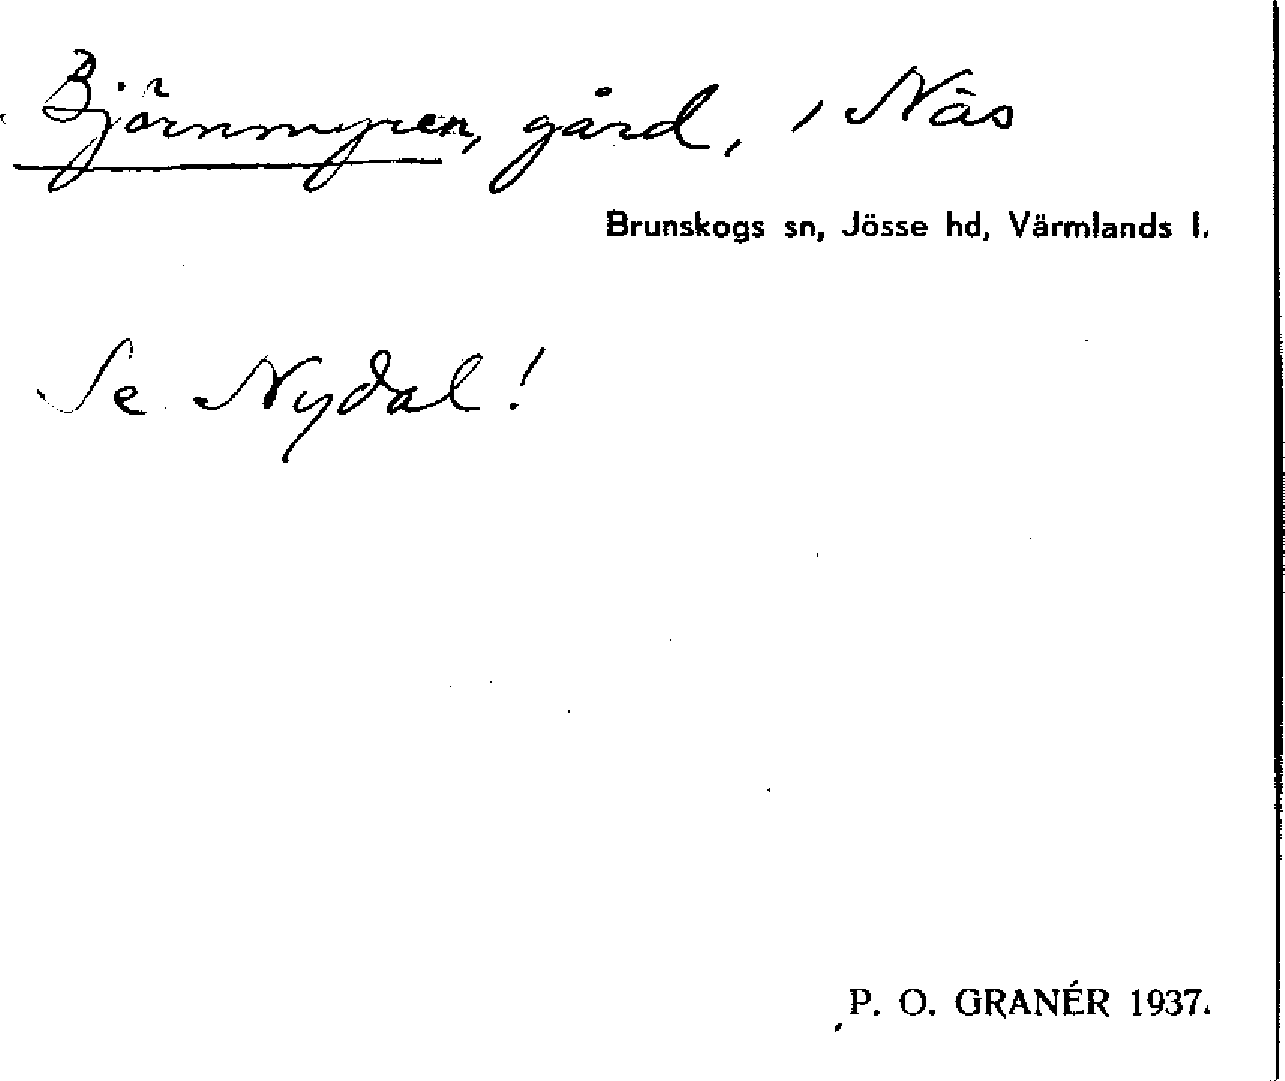 Björnmyren, gård, i Näs
Brunskogs sn, Jösse hd, Värmlands l.
Se Nydal!
P. O. GRANÉR 1937.